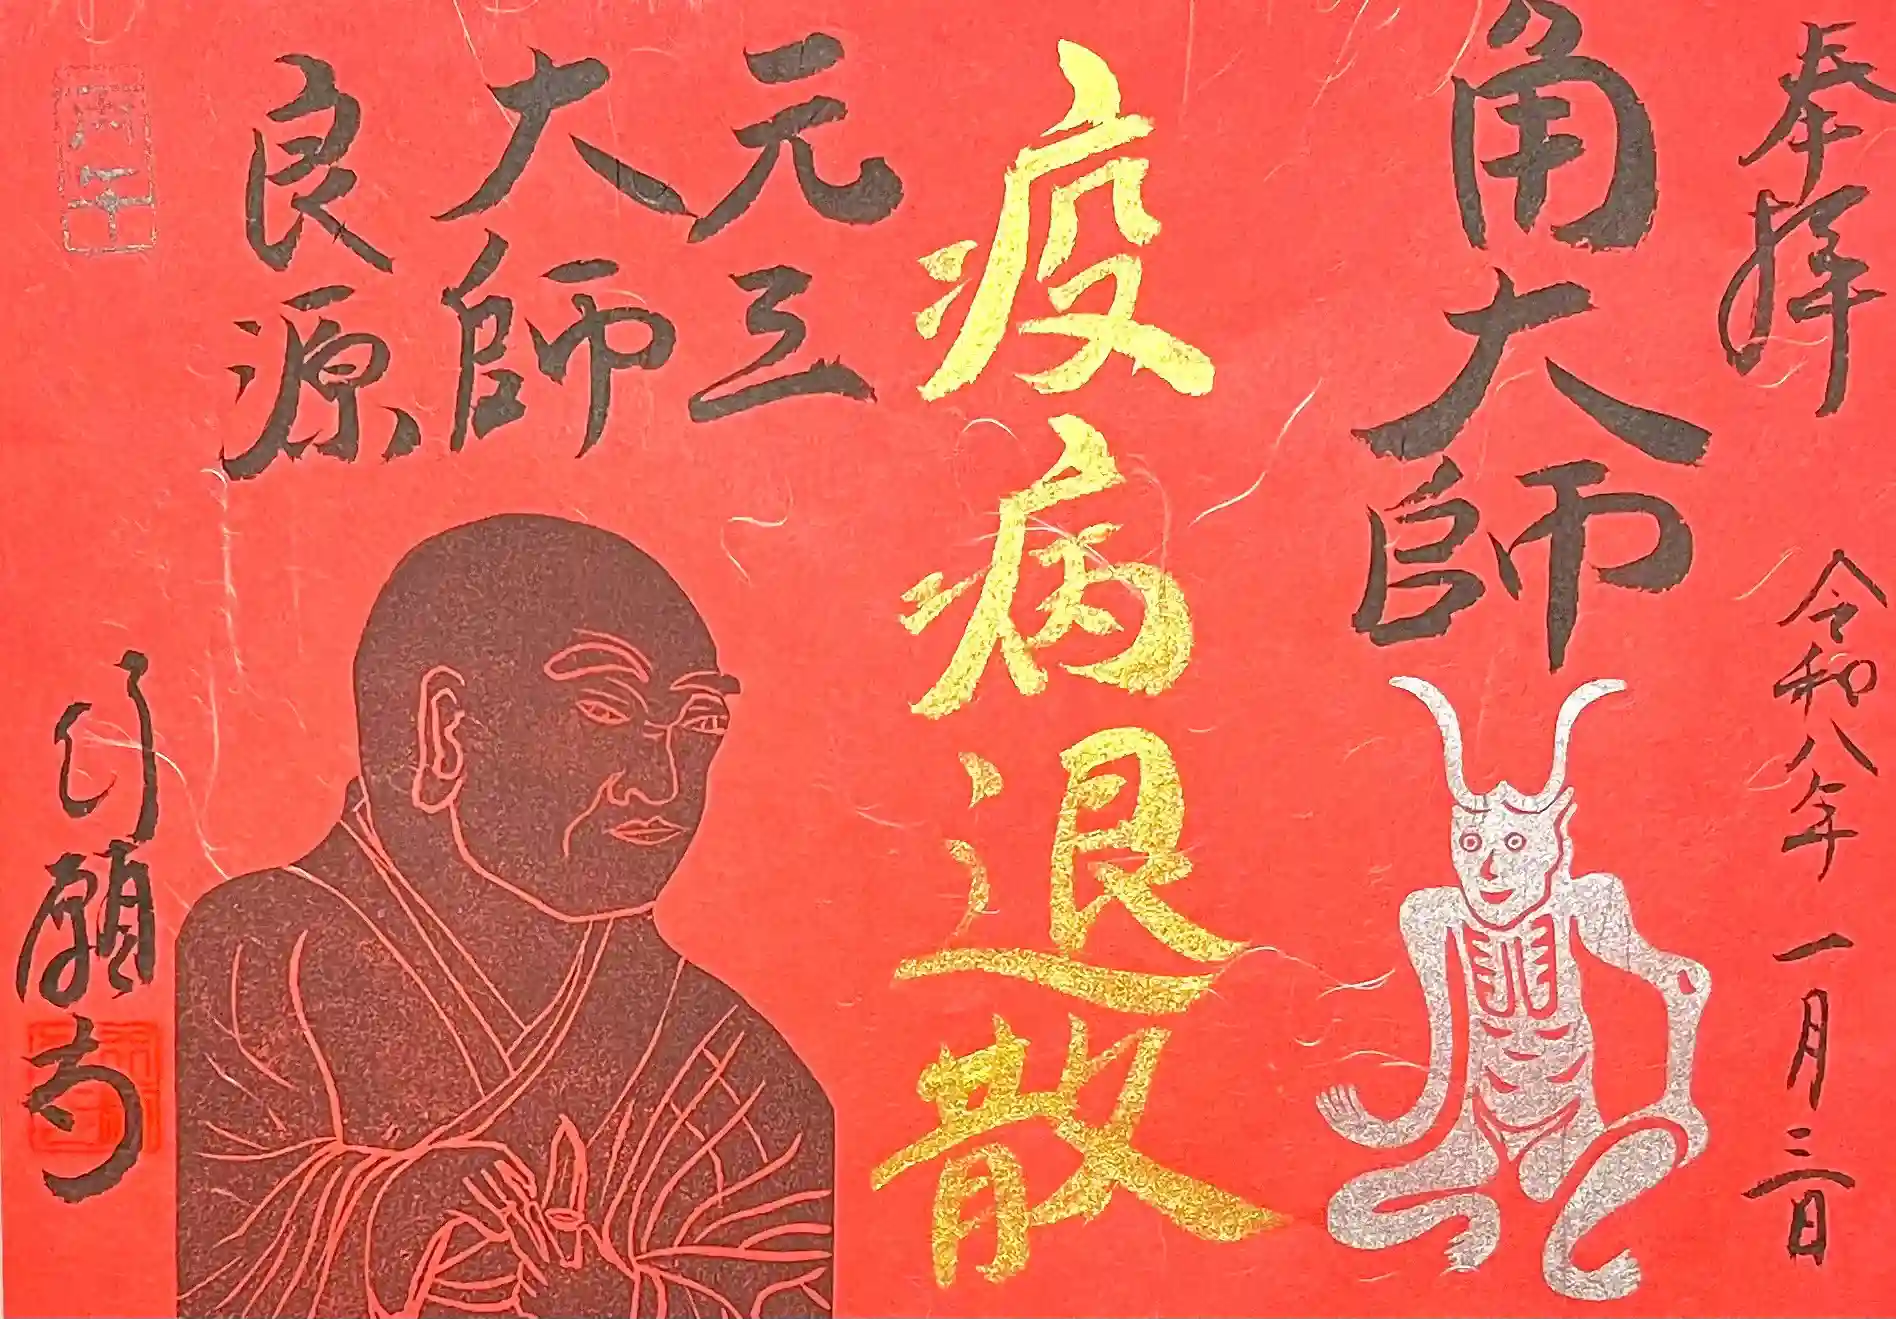 奉拝
令和八年一月三日
角大師
疫病退散
元三
大師
良源
丙午
行願寺